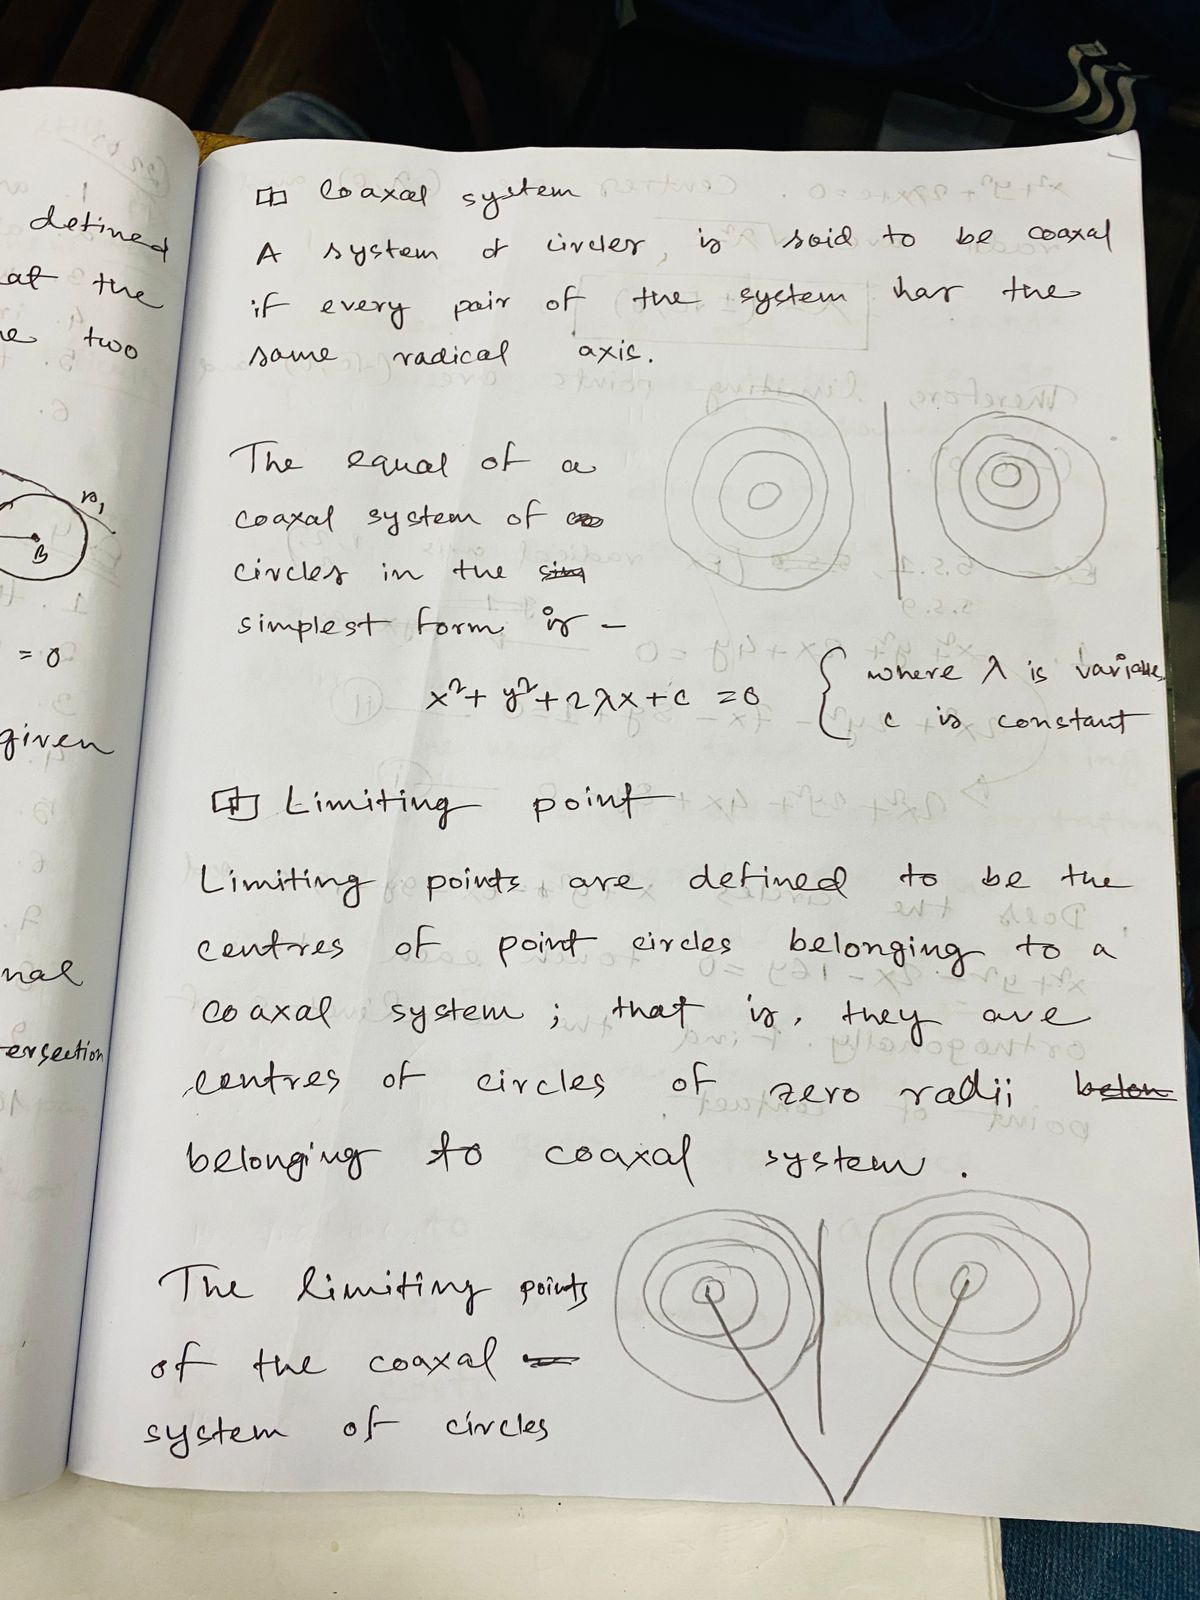 defined
at the
two
B
= 0
given
nal
ersection
Coaxal system
A system of circles, is said to be coaxal
if every pair of the system has the
same radical axis.
The equal of a
coaxal system of
circles in the
simplest form is –
x² + y² + 2λx + c = 0 { where λ is variable
c is constant
Limiting point
Limiting points are defined to be the
centres of point circles belonging to a
coaxal system ; that is, they are
centres of circles of zero radii belon
belonging to coaxal system .
The limiting points
of the coaxal
system of circles